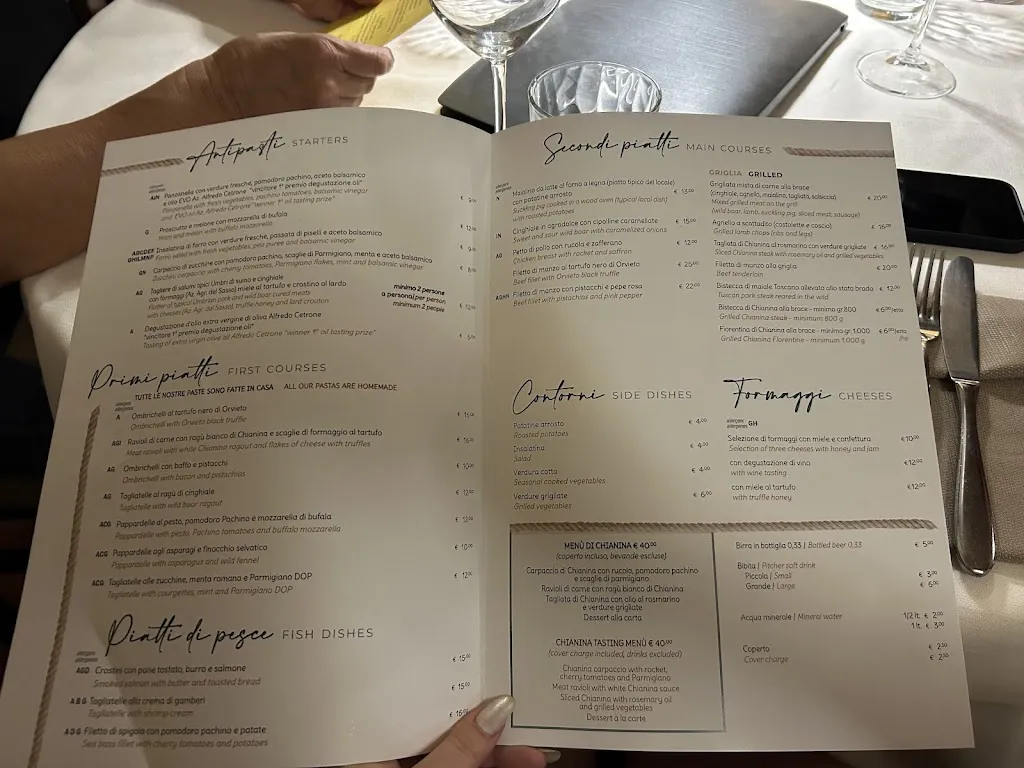 Antipasti STARTERS
AN Panzanella con verdure fresche, pomodoro pachino, aceto balsamico
e olio EVO Az. Alfredo Cetrone "vincitore 1° premio degustazione oli"
Panzanella with fresh vegetables, pachino tomatoes, balsamic vinegar
and EVO oil Az. Alfredo Cetrone "winner 1° oil tasting prize"
G Prosciutto e melone con mozzarella di bufala € 12
Ham and melon with buffalo mozzarella
Insalatina di farro con verdure fresche, passata di piselli e aceto balsamico
Farro salad with fresh vegetables, pea puree and balsamic vinegar
GN Carpaccio di zucchine con pomodoro pachino, scaglie di Parmigiano, menta e aceto balsamico
Zucchini carpaccio with cherry tomatoes, Parmigiano flakes, mint and balsamic vinegar
AG Tagliere di salumi tipici Umbri di suino e cinghiale
con formaggi (Az. Agr. del Sasso) miele al tartufo e crostino al lardo
Platter of typical Umbrian pork and wild boar cured meats
with cheeses (Az. Agr. del Sasso), truffle honey and lard crouton
minimo 2 persone
a persona/per person
minimum 2 people
A Degustazione d'olio extra vergine di oliva Alfredo Cetrone
"vincitore 1° premio degustazione oli"
Tasting of extra virgin olive oil Alfredo Cetrone "winner 1° oil tasting prize"
Primi piatti FIRST COURSES
TUTTE LE NOSTRE PASTE SONO FATTE IN CASA ALL OUR PASTAS ARE HOMEMADE
A Ombrichelli al tartufo nero di Orvieto € 15
Ombrichelli with Orvieto black truffle
AGI Ravioli di carne con ragù bianco di Chianina e scaglie di formaggio al tartufo
Meat ravioli with white Chianina ragout and flakes of cheese with truffles
AG Ombrichelli con baffo e pistacchi € 10
Ombrichelli with bacon and pistachios
AG Tagliatelle al ragù di cinghiale € 12
Tagliatelle with wild boar ragout
ACG Pappardelle al pesto, pomodoro Pachino e mozzarella di bufala
Pappardelle with pesto, Pachino tomatoes and buffalo mozzarella
ACG Pappardelle agli asparagi e finocchio selvatico € 10
Pappardelle with asparagus and wild fennel
ACG Tagliatelle alle zucchine, menta romana e Parmigiano DOP € 12
Tagliatelle with courgettes, mint and Parmigiano DOP
Piatti di pesce FISH DISHES
AGD Crostini con pane tostato, burro e salmone € 15
Smoked salmon with butter and toasted bread
ABG Tagliatelle alla crema di gamberi € 15
Tagliatelle with shrimp cream
Filetto di spigola con pomodoro pachino e patate
Sea bass fillet with cherry tomatoes and potatoes
Secondi piatti MAIN COURSES
N Maialino da latte al forno a legna (piatto tipico del locale)
con patatine arrosto € 13
Suckling pig cooked in a wood oven (typical local dish)
with roasted potatoes
IN Cinghiale in agrodolce con cipolline caramellate € 15
Sweet and sour wild boar with caramelized onions
AG Petto di pollo con rucola e zafferano € 12
Chicken breast with rocket and saffron
Filetto di manzo al tartufo nero di Orvieto € 25
Beef fillet with Orvieto black truffle
AGHN Filetto di manzo con pistacchi e pepe rosa € 22
Beef fillet with pistachios and pink pepper
GRIGLIA GRILLED
Grigliata mista di carne alla brace
(cinghiale, agnello, maialino, tagliata, salsiccia) € 20
Mixed grilled meat on the grill
(wild boar, lamb, suckling pig, sliced meat, sausage)
Agnello a scottadito (costolette e coscio) € 16
Grilled lamb chops (ribs and legs)
Tagliata di Chianina al rosmarino con verdure grigliate € 16
Sliced Chianina steak with rosemary oil and grilled vegetables
Filetto di manzo alla griglia € 20
Beef tenderloin
Bistecca di maiale Toscano allevato allo stato brado € 12
Tuscan pork steak reared in the wild
Bistecca di Chianina alla brace - minimo gr.800 € 6 /etto
Grilled Chianina steak - minimum 800 g
Fiorentina di Chianina alla brace - minimo gr.1.000 € 6 /etto
Grilled Chianina Florentine - minimum 1.000 g
Contorni SIDE DISHES
Patatine arrosto € 4,00
Roasted potatoes
Insalatina € 4,00
Salad
Verdura cotta € 4,00
Seasonal cooked vegetables
Verdure grigliate € 6,00
Grilled vegetables
Formaggi CHEESES
GH
Selezione di formaggi con miele e confettura €10,00
Selection of three cheeses with honey and jam
con degustazione di vino €12,00
with wine tasting
con miele al tartufo €12,00
with truffle honey
MENÙ DI CHIANINA € 40,00
(coperto incluso, bevande escluse)
Carpaccio di Chianina con rucola, pomodoro pachino
e scaglie di parmigiano
Ravioli di carne con ragù bianco di Chianina
Tagliata di Chianina con olio al rosmarino
e verdure grigliate
Dessert alla carta
CHIANINA TASTING MENÙ € 40,00
(cover charge included, drinks excluded)
Chianina carpaccio with rocket,
cherry tomatoes and Parmigiano
Meat ravioli with white Chianina sauce
Sliced Chianina with rosemary oil
and grilled vegetables
Dessert à la carte
Birra in bottiglia 0,33 | Bottled beer 0,33 € 5,00
Bibita | Pitcher soft drink
Piccola | Small € 3,00
Grande | Large € 6,00
Acqua minerale | Mineral water 1/2 lt. € 2,00
1 lt. € 3,00
Coperto € 2,50
Cover charge € 2,50